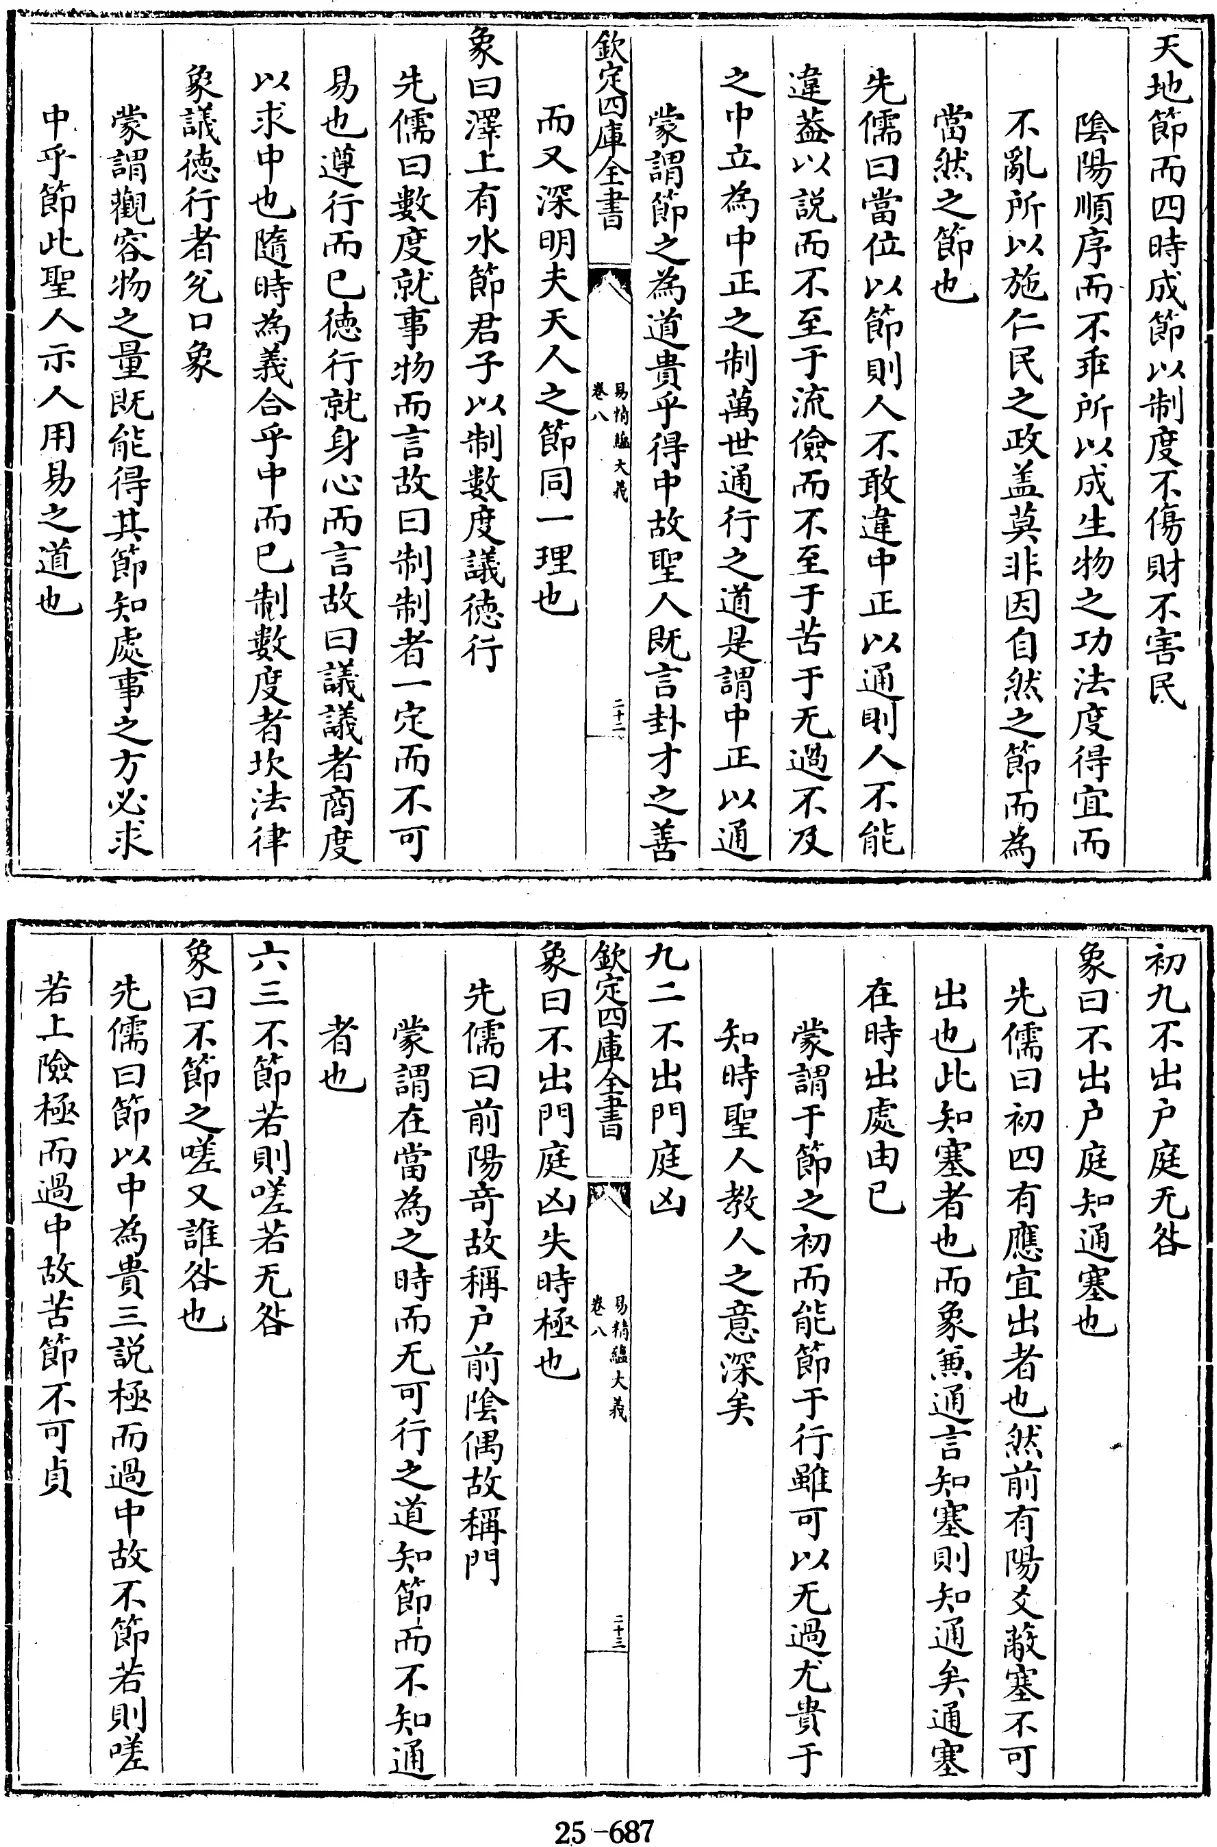 天地節而四時成節以制度不傷財不害民
陰陽順序而不乖所以成生物之功法度得宜而
不亂所以施仁民之政盖莫非因自然之節而為
當然之節也
先儒曰當位以節則人不敢違中正以通則人不能
違葢以説而不至于流儉而不至于苦于无過不及
之中立為中正之制萬世通行之道是謂中正以通
蒙謂節之為道貴乎得中故聖人既言卦才之善
欽定四庫全書
易精蘊大義
卷八
二十二
而又深明夫天人之節同一理也
象曰澤上有水節君子以制數度議徳行
先儒曰數度就事物而言故曰制制者一定而不可
易也遵行而已徳行就身心而言故曰議議者商度
以求中也隨時為義合乎中而已制數度者坎法律
象議徳行者兊口象
蒙謂觀容物之量既能得其節知處事之方必求
中乎節此聖人示人用易之道也
初九不出户庭无咎
象曰不出户庭知通塞也
先儒曰初四有應宜出者也然前有陽爻蔽塞不可
出也此知塞者也而象兼通言知塞則知通矣通塞
在時出處由已
蒙謂于節之初而能節于行雖可以无過尤貴于
知時聖人教人之意深矣
九二不出門庭凶
欽定四庫全書
易精蘊大義
卷八
二十三
象曰不出門庭凶失時極也
先儒曰前陽竒故稱户前陰偶故稱門
蒙謂在當為之時而无可行之道知節而不知通
者也
六三不節若則嗟若无咎
象曰不節之嗟又誰咎也
先儒曰節以中為貴三説極而過中故不節若則嗟
若上險極而過中故苦節不可貞
25-687